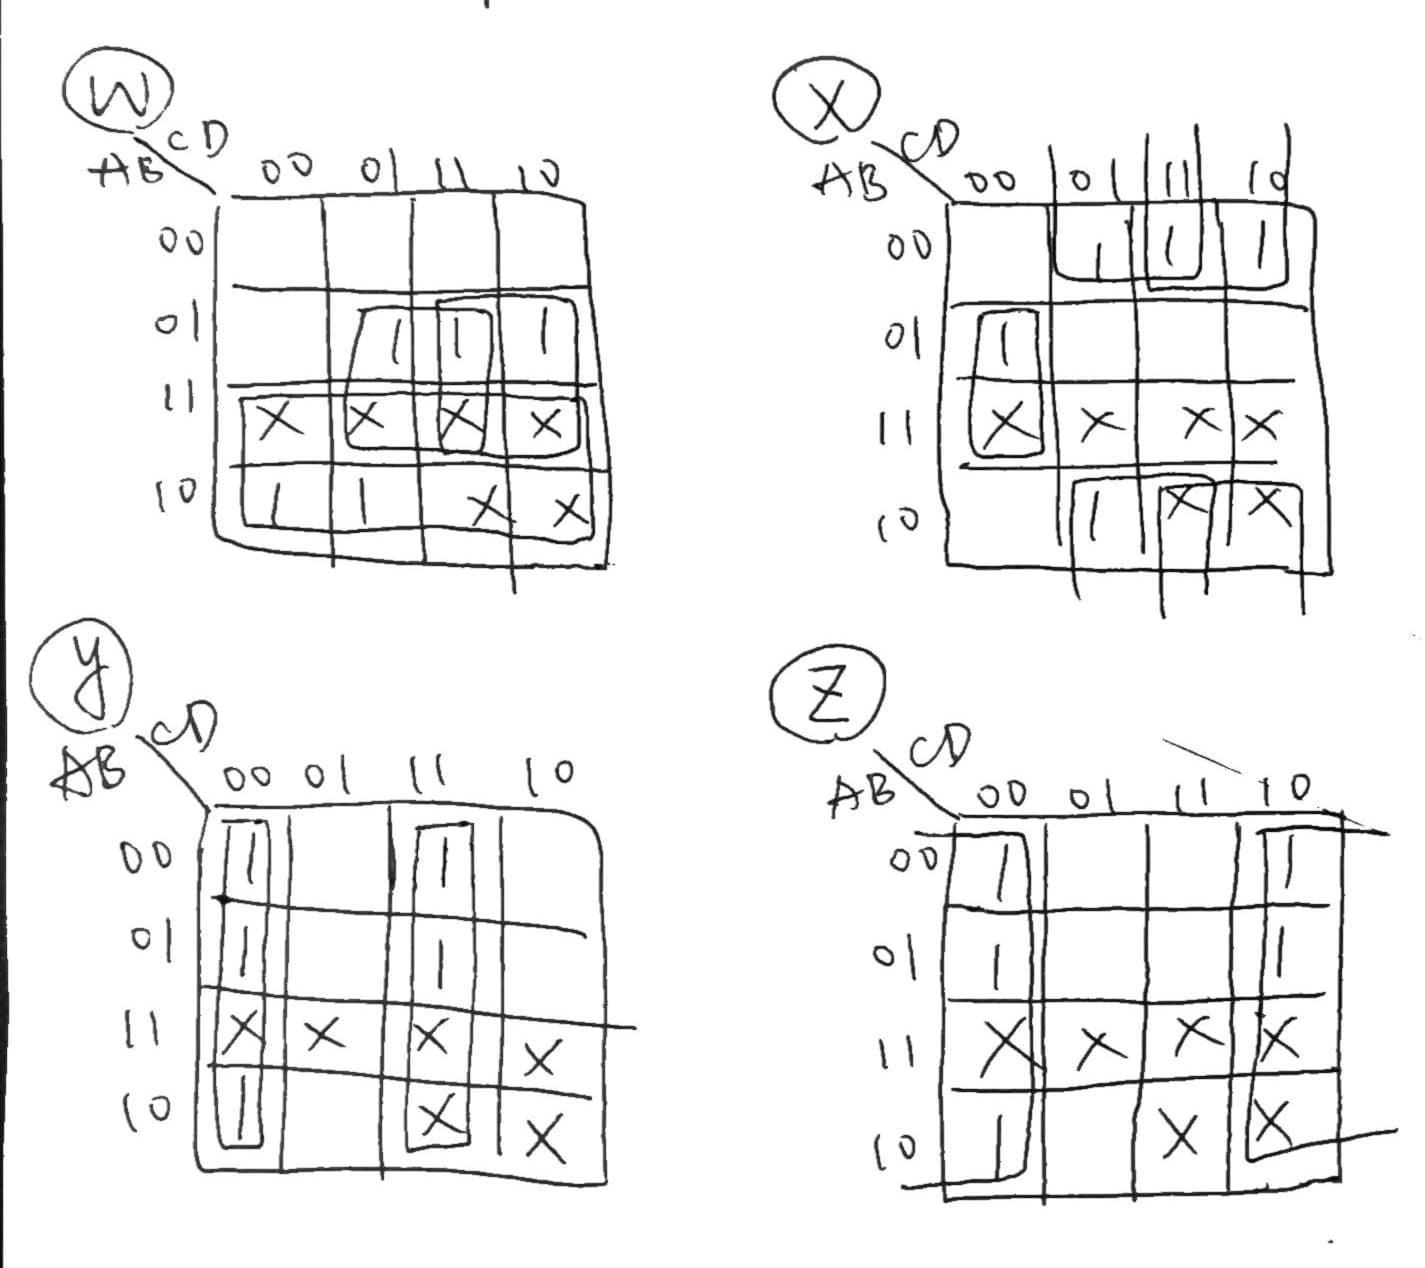 W
CD
AB 00 01 11 10
00
01 1 1 1
11 X X X X
10 1 1 X X
X
CD
AB 00 01 11 10
00 1 1 1
01 1
11 X X X X
10 1 X X
y
CD
AB 00 01 11 10
00 1 1
01 1 1
11 X X X X
10 1 X X
Z
CD
AB 00 01 11 10
00 1 1
01 1 1
11 X X X X
10 1 X X